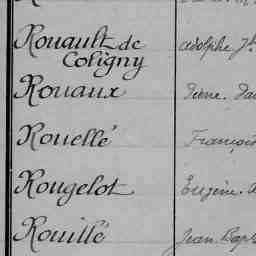 Rouault de Adolphe J
Coligny
Rouaux Pierre
Rouellé François
Rougelot Eugène
Rouillé Jean Bapt